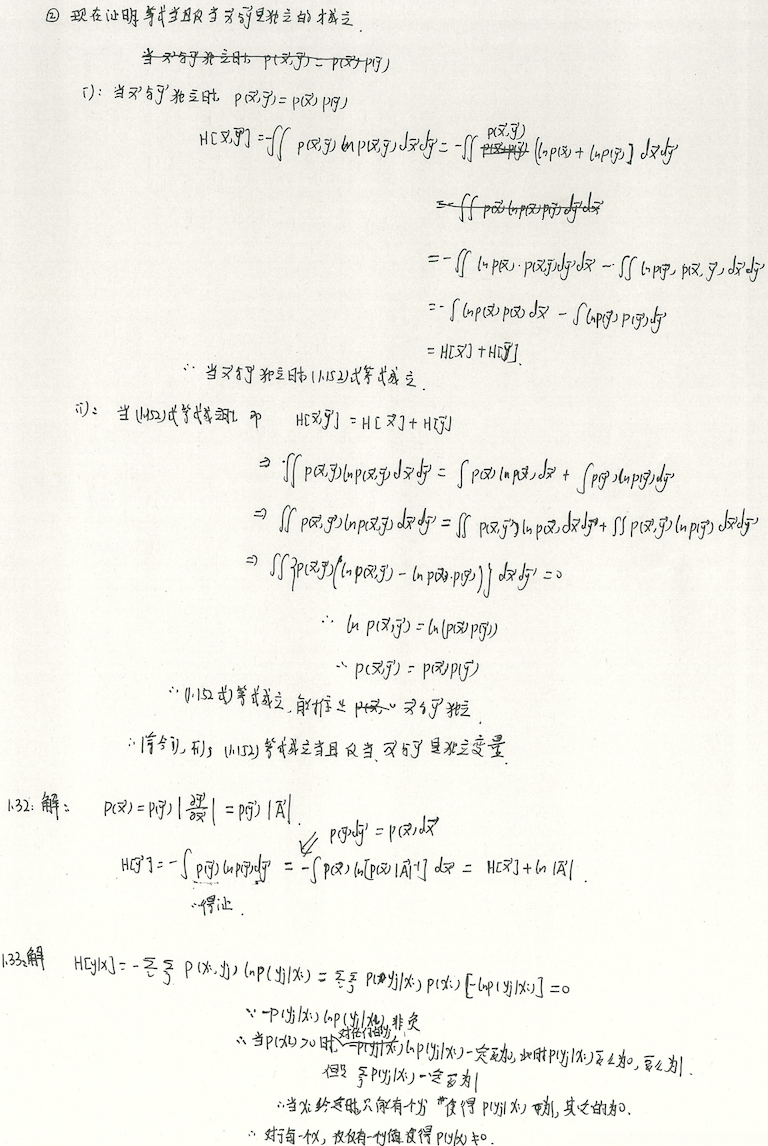 ② 现在证明等式当且仅当 x⃗与y⃗是独立的才成立.
当x⃗与y⃗独立时, p(x⃗,y⃗) = p(x⃗) p(y⃗)
i): 当x⃗与y⃗独立时, p(x⃗,y⃗) = p(x⃗) p(y⃗)
H[x⃗,y⃗] = -∬ p(x⃗,y⃗) ln p(x⃗,y⃗) dx⃗dy⃗ = -∬ p(x⃗,y⃗) [ln p(x⃗) + ln p(y⃗)] dx⃗dy⃗
= -∬ p(x⃗) ln p(x⃗) p(y⃗) dy⃗dx⃗
= -∬ ln p(x⃗) · p(x⃗,y⃗) dy⃗dx⃗ - ∬ ln p(y⃗) p(x⃗,y⃗) dx⃗dy⃗
= -∫ ln p(x⃗) p(x⃗) dx⃗ - ∫ ln p(y⃗) p(y⃗) dy⃗
= H[x⃗] + H[y⃗].
∴ 当x⃗与y⃗独立时(1.152)式等式成立.
ii): 当(1.152)式等式成立时, 即 H[x⃗,y⃗] = H[x⃗] + H[y⃗]
⇒ ∬ p(x⃗,y⃗) ln p(x⃗,y⃗) dx⃗dy⃗ = ∫ p(x⃗) ln p(x⃗) dx⃗ + ∫ p(y⃗) ln p(y⃗) dy⃗
⇒ ∬ p(x⃗,y⃗) ln p(x⃗,y⃗) dx⃗dy⃗ = ∬ p(x⃗,y⃗) ln p(x⃗) dx⃗dy⃗ + ∬ p(x⃗,y⃗) ln p(y⃗) dx⃗dy⃗
⇒ ∬ {p(x⃗,y⃗) (ln p(x⃗,y⃗) - ln p(x⃗)·p(y⃗))} dx⃗dy⃗ = 0
∴ ln p(x⃗,y⃗) = ln(p(x⃗)p(y⃗))
∴ p(x⃗,y⃗) = p(x⃗)p(y⃗)
∴ (1.152式)等式成立, 能推出 x⃗与y⃗独立.
∴ 综合i), ii), (1.152)等式成立当且仅当 x⃗与y⃗是独立变量.
1.32: 解: p(x⃗) = p(y⃗) |∂y⃗/∂x⃗| = p(y⃗) |A⃗|.
p(y⃗)dy⃗ = p(x⃗)dx⃗
H[y⃗] = -∫ p(y⃗) ln p(y⃗) dy⃗ = -∫ p(x⃗) ln[p(x⃗) |A⃗|⁻¹] dx⃗ = H[x⃗] + ln |A⃗|.
∴得证.
1.33: 解 H[y|x] = -∑i ∑j p(xi, yj) ln p(yj|xi) = ∑i ∑j p(yj|xi) p(xi) [-ln p(yj|xi)] = 0
∵ -p(yj|xi) ln p(yj|xi) 非负
∴ 当p(xi) > 0时, 对任何的j, -p(yj|xi) ln p(yj|xi) 一定要为0, 此时p(yj|xi)要么为0, 要么为1.
但是 ∑j p(yj|xi) 一定要为1
∴当xi给定时, 只能有个yj 使得 p(yj|xi) 为1, 其它的为0.
∴ 对于每一个x, 仅有一个y值使得 p(y|x) ≠ 0.